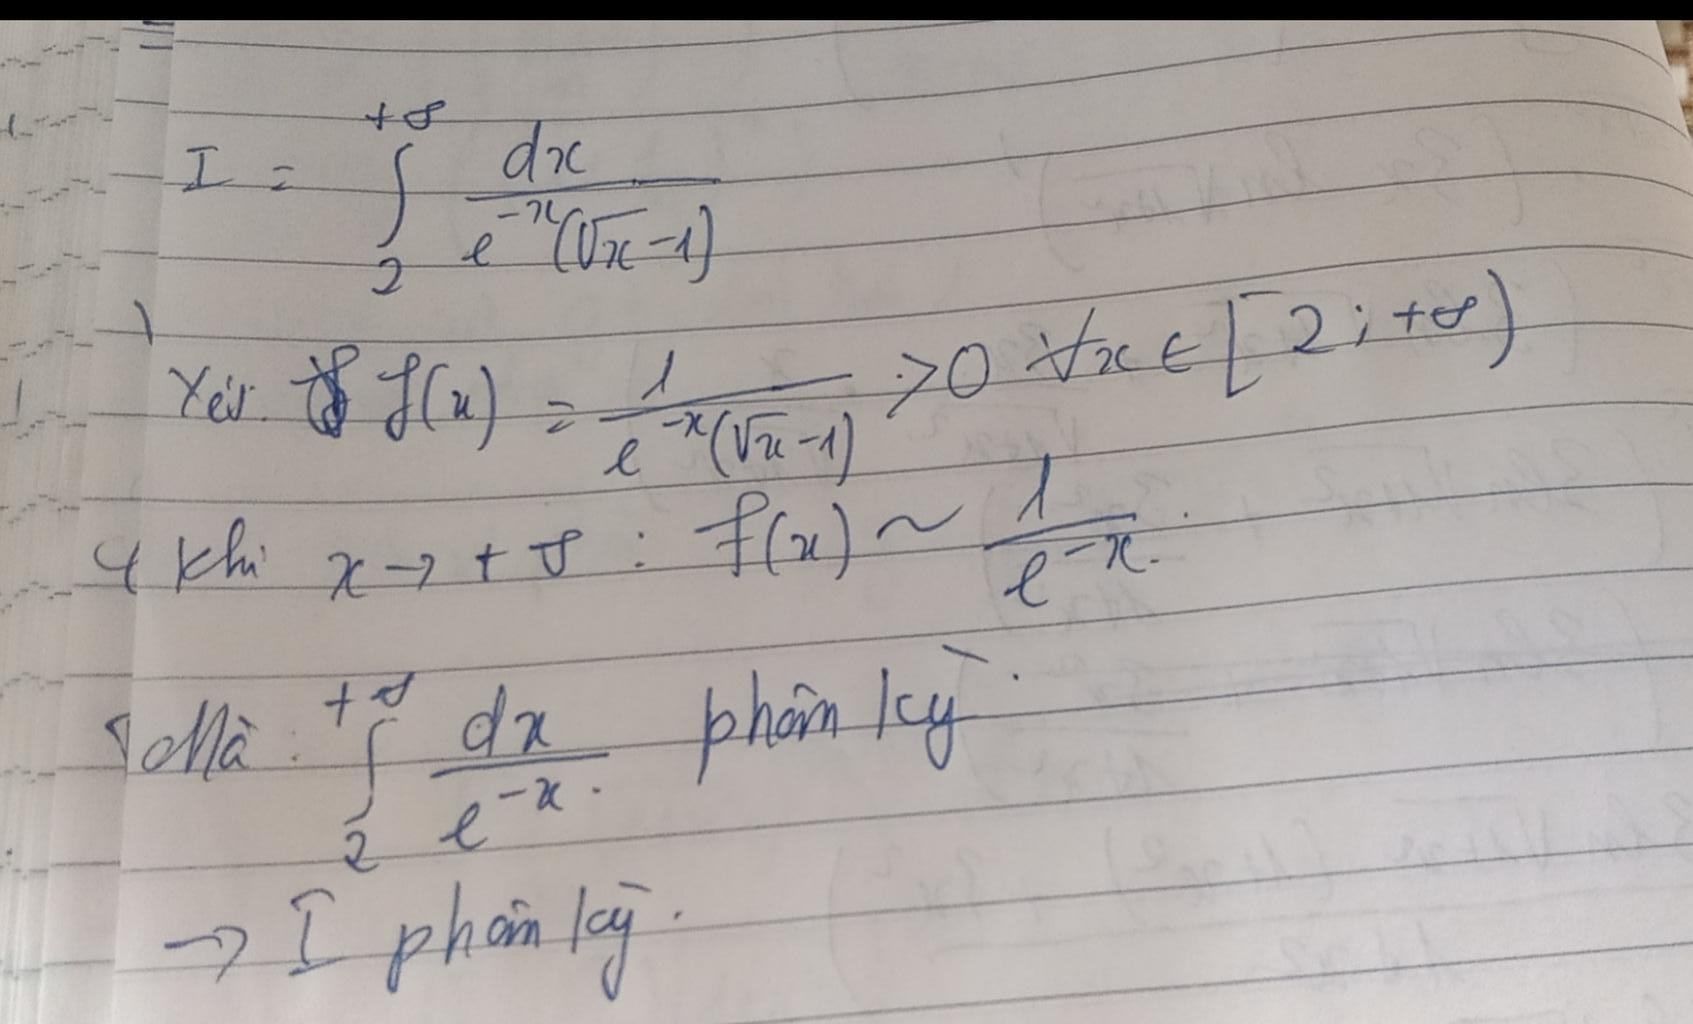 I = ∫₂^{+∞} dx / (e^{-x}(√x - 1))
Xét f(x) = 1 / (e^{-x}(√x - 1)) > 0 ∀x ∈ [2; +∞)
Khi x → + ∞ : f(x) ~ 1 / e^{-x}.
Mà : ∫₂^{+∞} dx / e^{-x}. phân kỳ.
→ I phân kỳ.